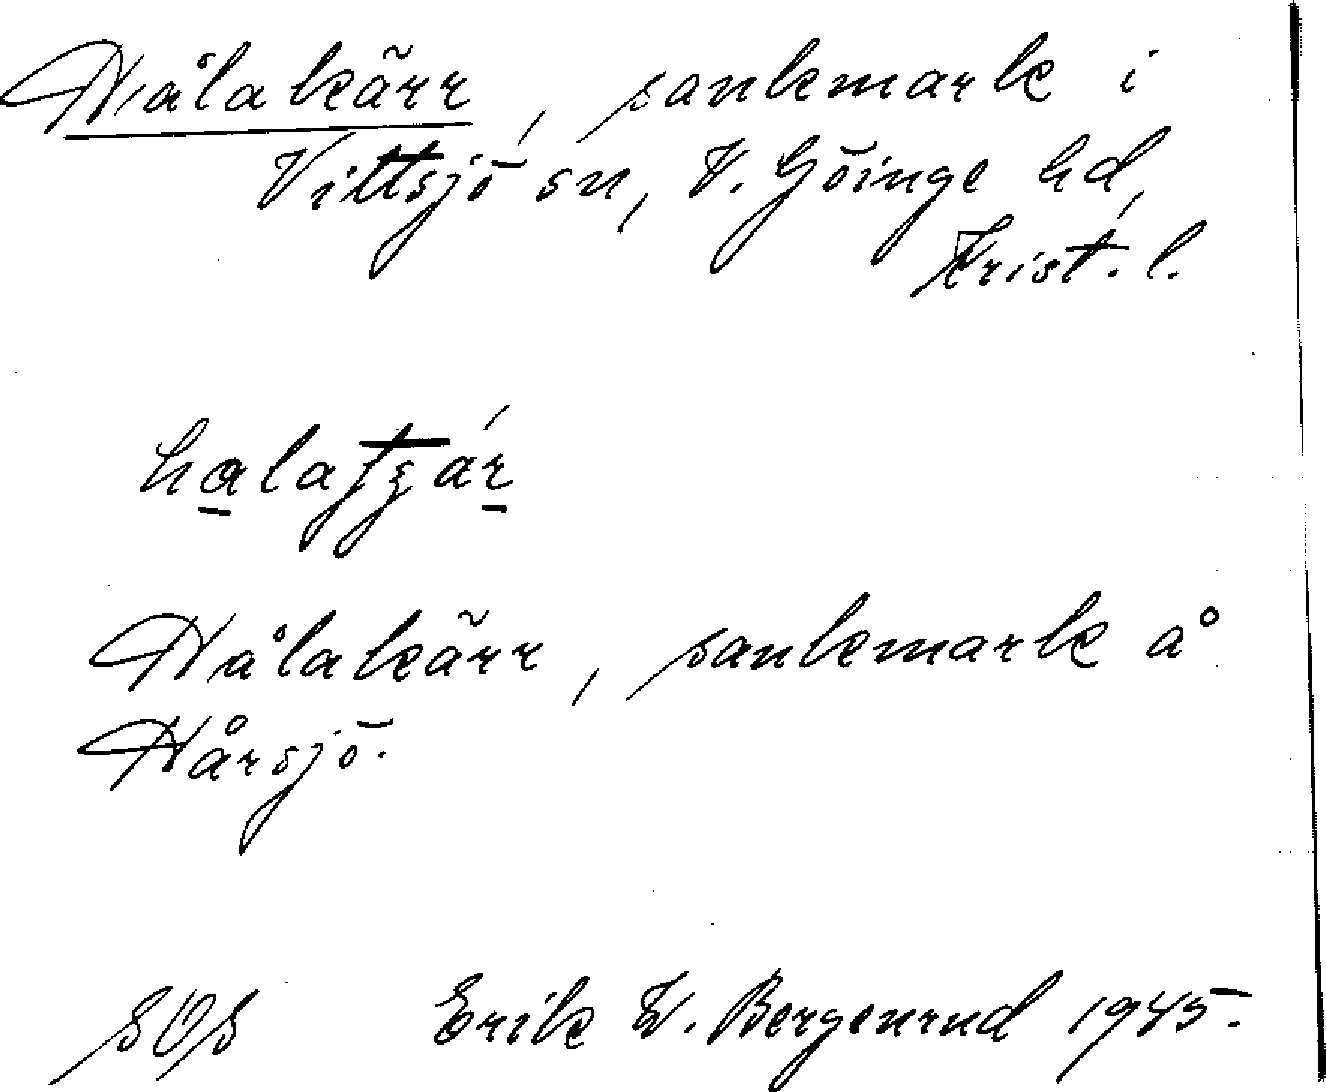 Hålakärr, sankmark i
Vittsjö sn, V. Göinge hd,
Krist. l.
Hålakärr, sankmark å
Hårsjö.
SOS Erik W. Bergenrud 1945.